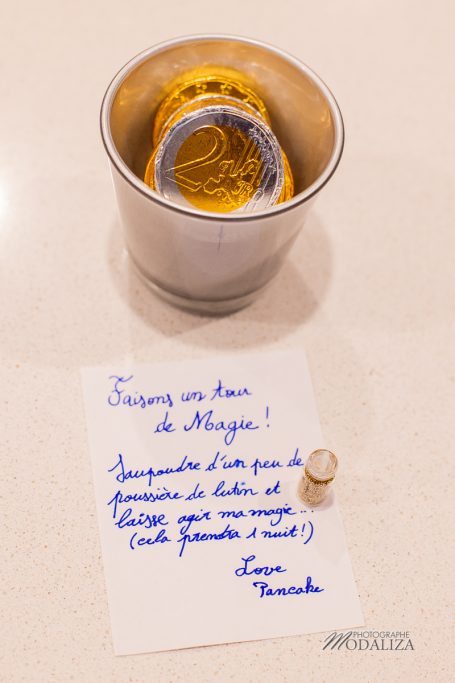 2
EURO
Faisons un tour
de Magie !
Saupoudre d'un peu de
poussière de lutin et
laisse agir ma magie...
(cela prendra 1 nuit !)
Love
Pancake
PHOTOGRAPHE
MODALIZA